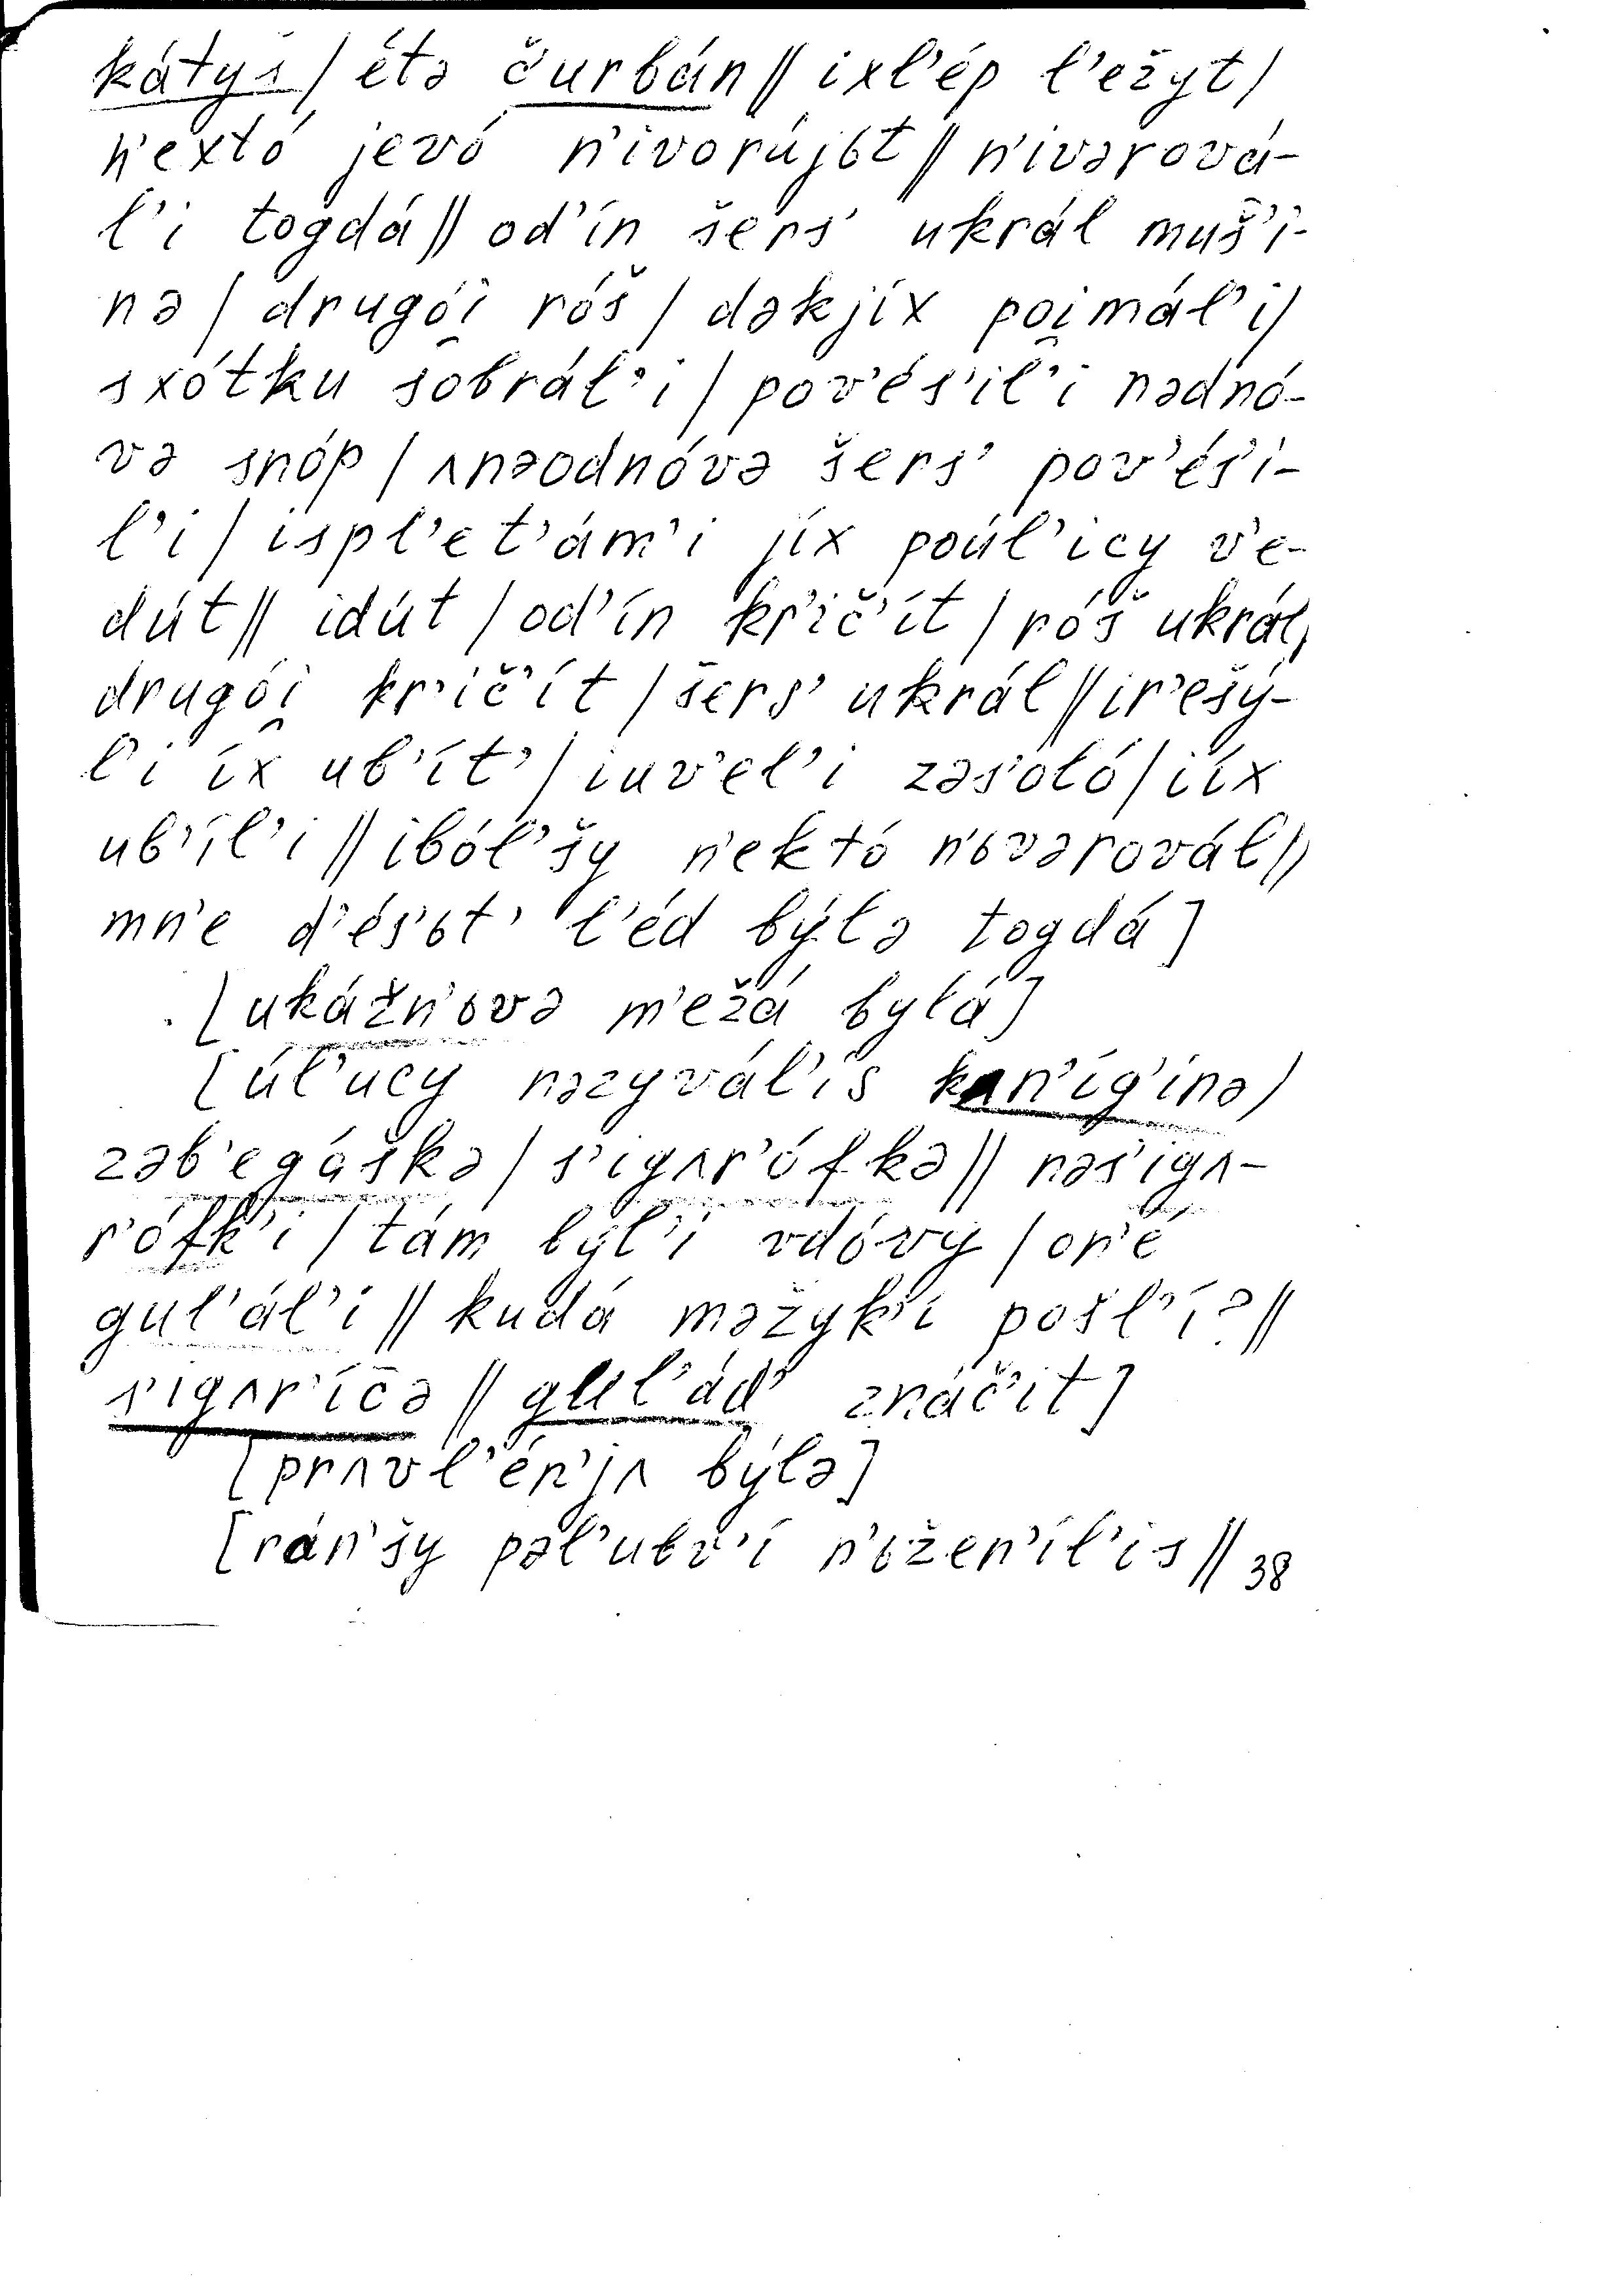 kátyš / étə čurbán // ixl’ép l’ežyt /
n’extó jevó n’ivorújьt // n’ivərová-
l’i togdá // od’ín šers’ ukrál muš’í-
nə / drugói̯ róš / dəkjíx poi̯mál’i /
sxótku sobrál’i / pov’és’il’i nədnó-
və snóp / ʌnəodnóvə šers’ pov’és’i-
l’i / ispl’et’ám’i jíx poúl’icy v’e-
dút // idút / od’ín kr’ič’ít / róš ukrál,
drugói̯ kr’ič’ít / šers’ ukrál // ir’ešý-
l’i íx ub’ít’ / iuv’el’i zəs’oló / iíx
ub’íl’i // iból’šy n’ektó n’ьvərovál //
mn’e d’és’ьt’ l’éd býlə togdá]
[ukážn’ьvə m’ežá bylá]
[úl’ucy nəzyvál’is kʌn’íg’inə /
zəb’egáškə / s’igʌr’ófkə // nəs’igʌ-
r’ófk’i / tám býl’i vdóvy / on’é
gul’ál’i // kudá məžyk’í pošl’í? //
s’igʌr’íčə // gul’ád’ znáč’it]
[prʌvl’én’jʌ býlə]
[rán’šy pəl’ubv’í n’ьžen’íl’is // 38